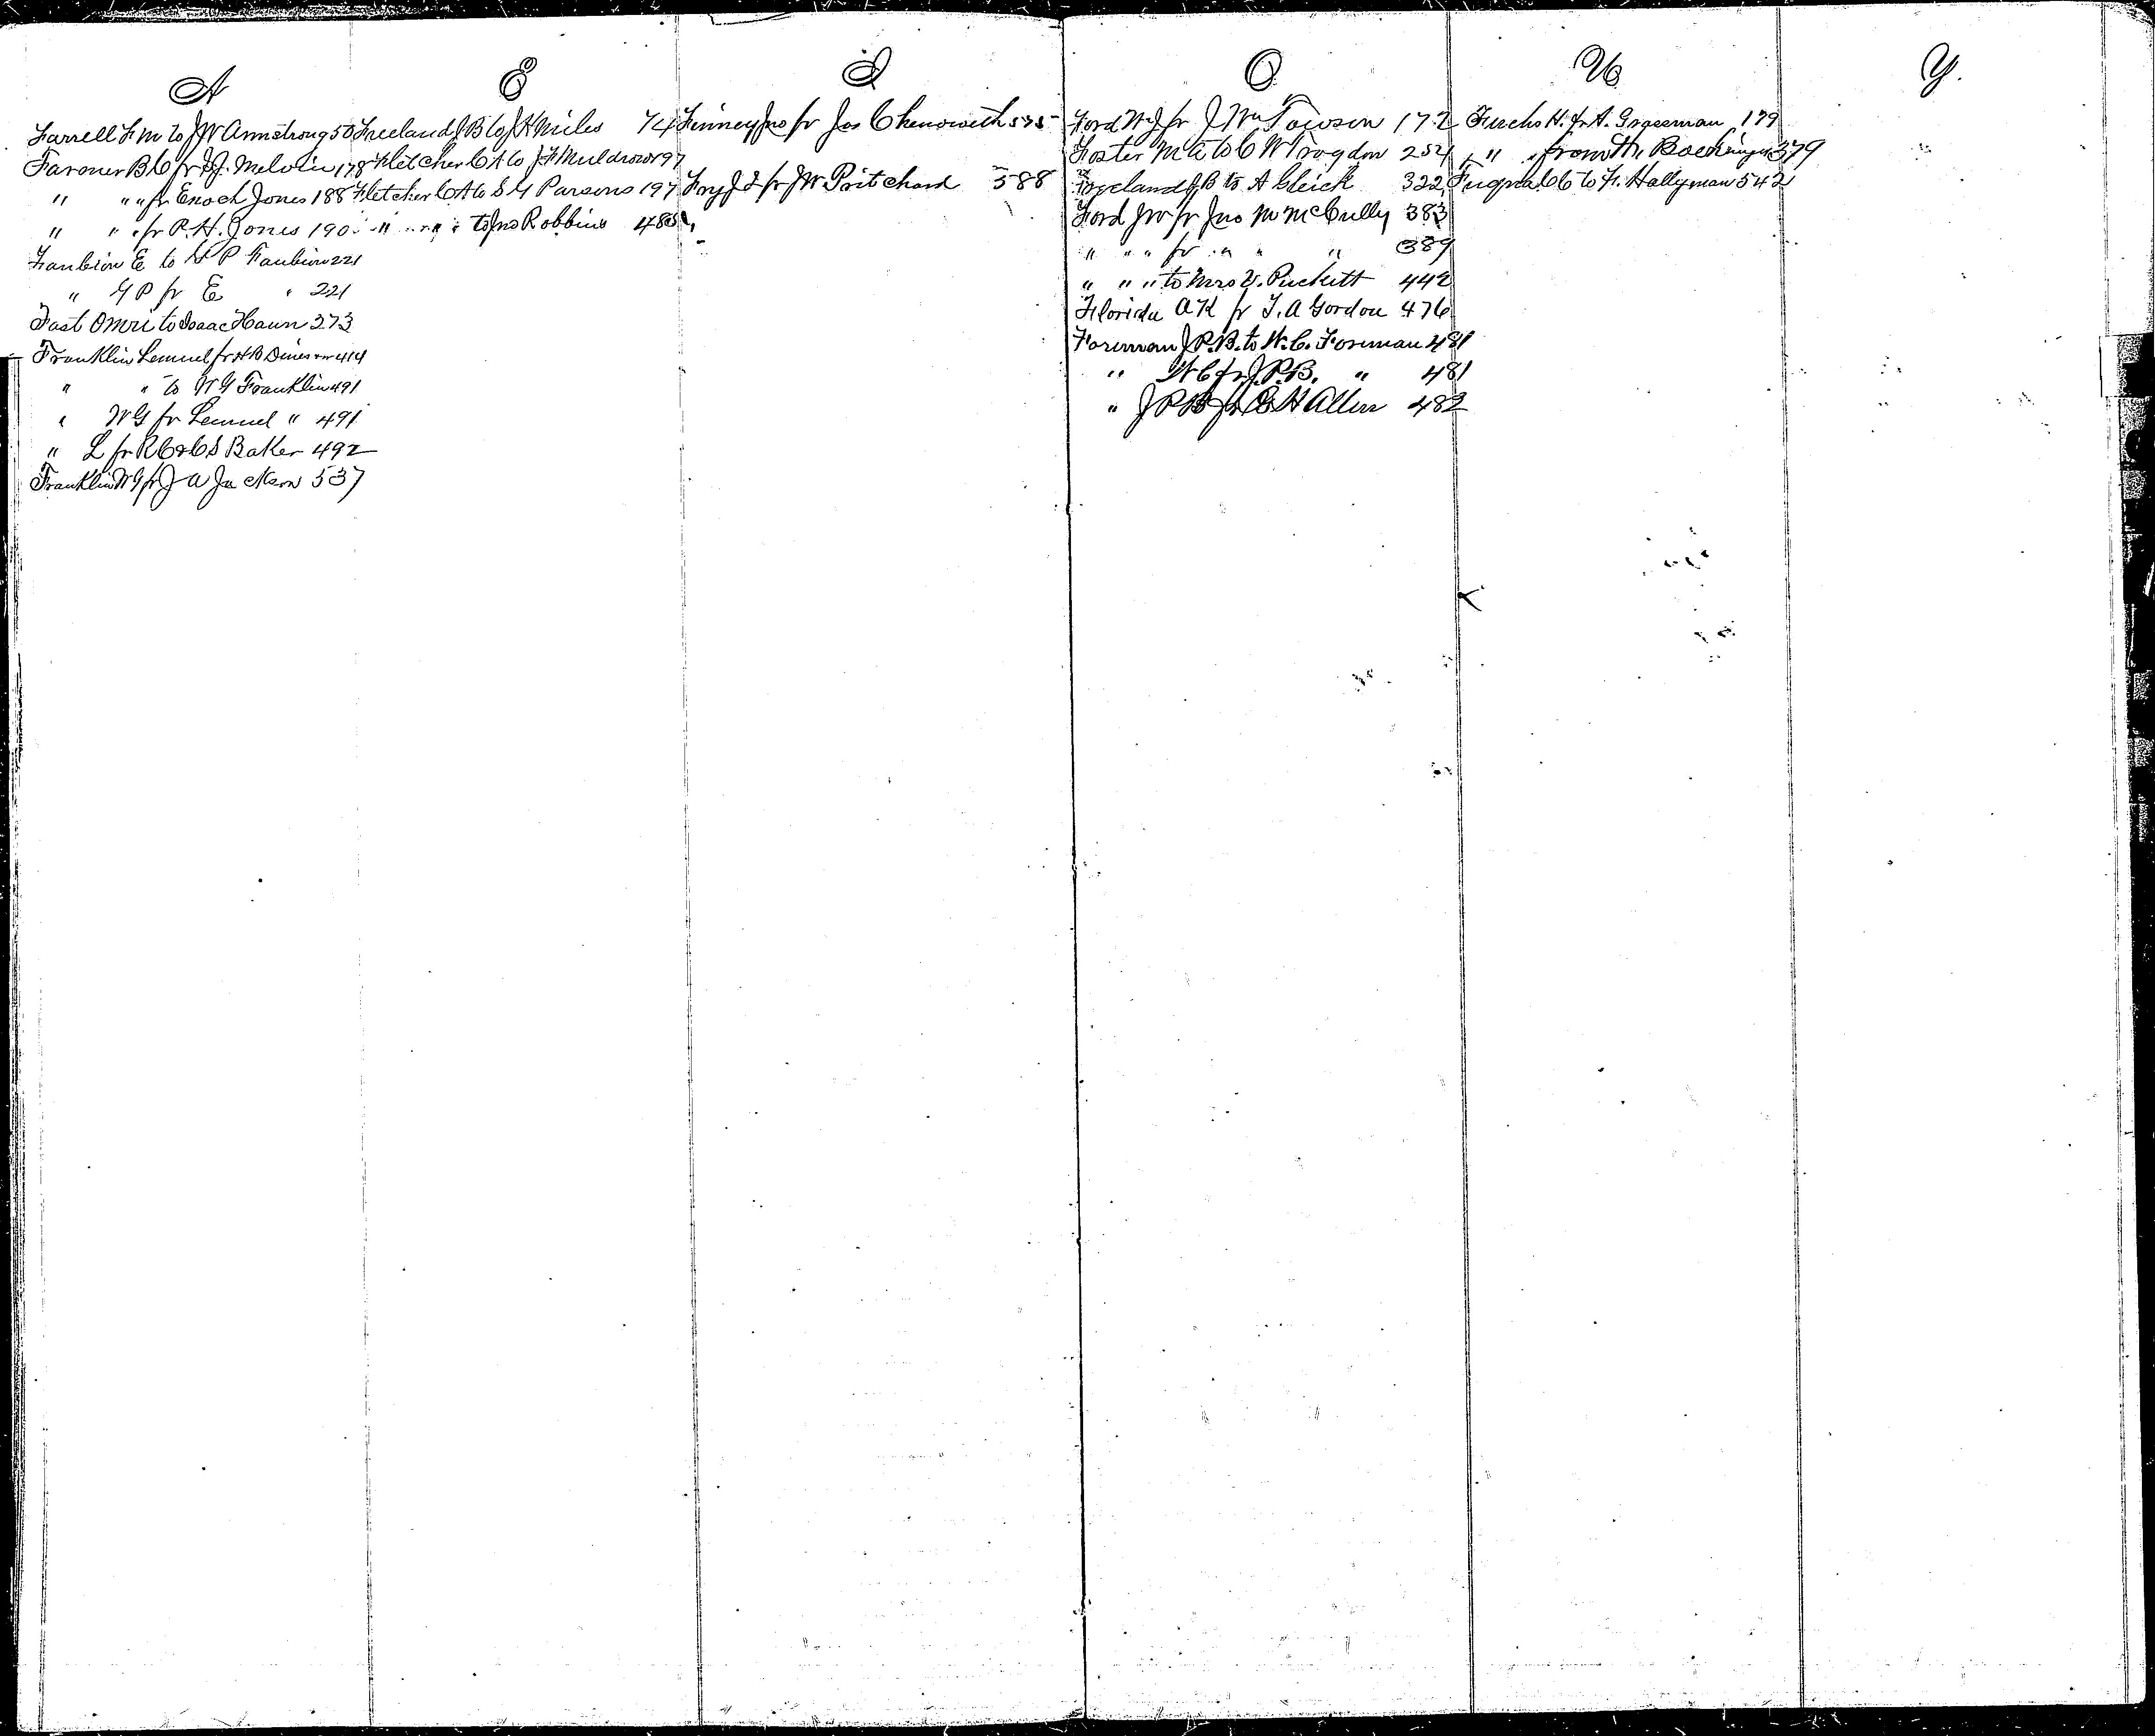 A
Farrell F M to J W Armstrong 50
Faroner B C fr S J. Melvin 178
" " " fr Enoch Jones 188
" " " fr P. H. Jones 190
Faubion E to G P Faubion 221
" G P fr E " 221
Fast Omri to Isaac Haun 373
Franklin Lemuel fr H B 414
" " to W G Franklin 491
" W G fr Lemuel " 491
" L fr R C & C S Baker 492
Franklin W G fr J A Jackson 537
E
Freeland J B to J H Miles 74
Fletcher C A to J F Muldrow 197
Fletcher C A to S G Parsons 197
" " " to Jno Robbins 485
I
Finney Jno fr Jas Chenoweth 575
Fry J I fr J W Pritchard 588
O
Ford W J fr J Wm Towson 172
Foster M A to C W Brogdon 254
J B to A Gleick 322
Ford J W fr Jno M McCully 383
" " " fr " " " 389
" " " to Mrs V. Puckett 442
Florida A K fr T. A Gordon 476
Foreman J P. B. to W. C. Foreman 481
" W C fr J. P. B. " 481
" J P B fr E H Allen 482
U
Fuchs H. fr A. Grassman 179
" " from 379
Fuqua C C to F. Hallyman 542
Y.